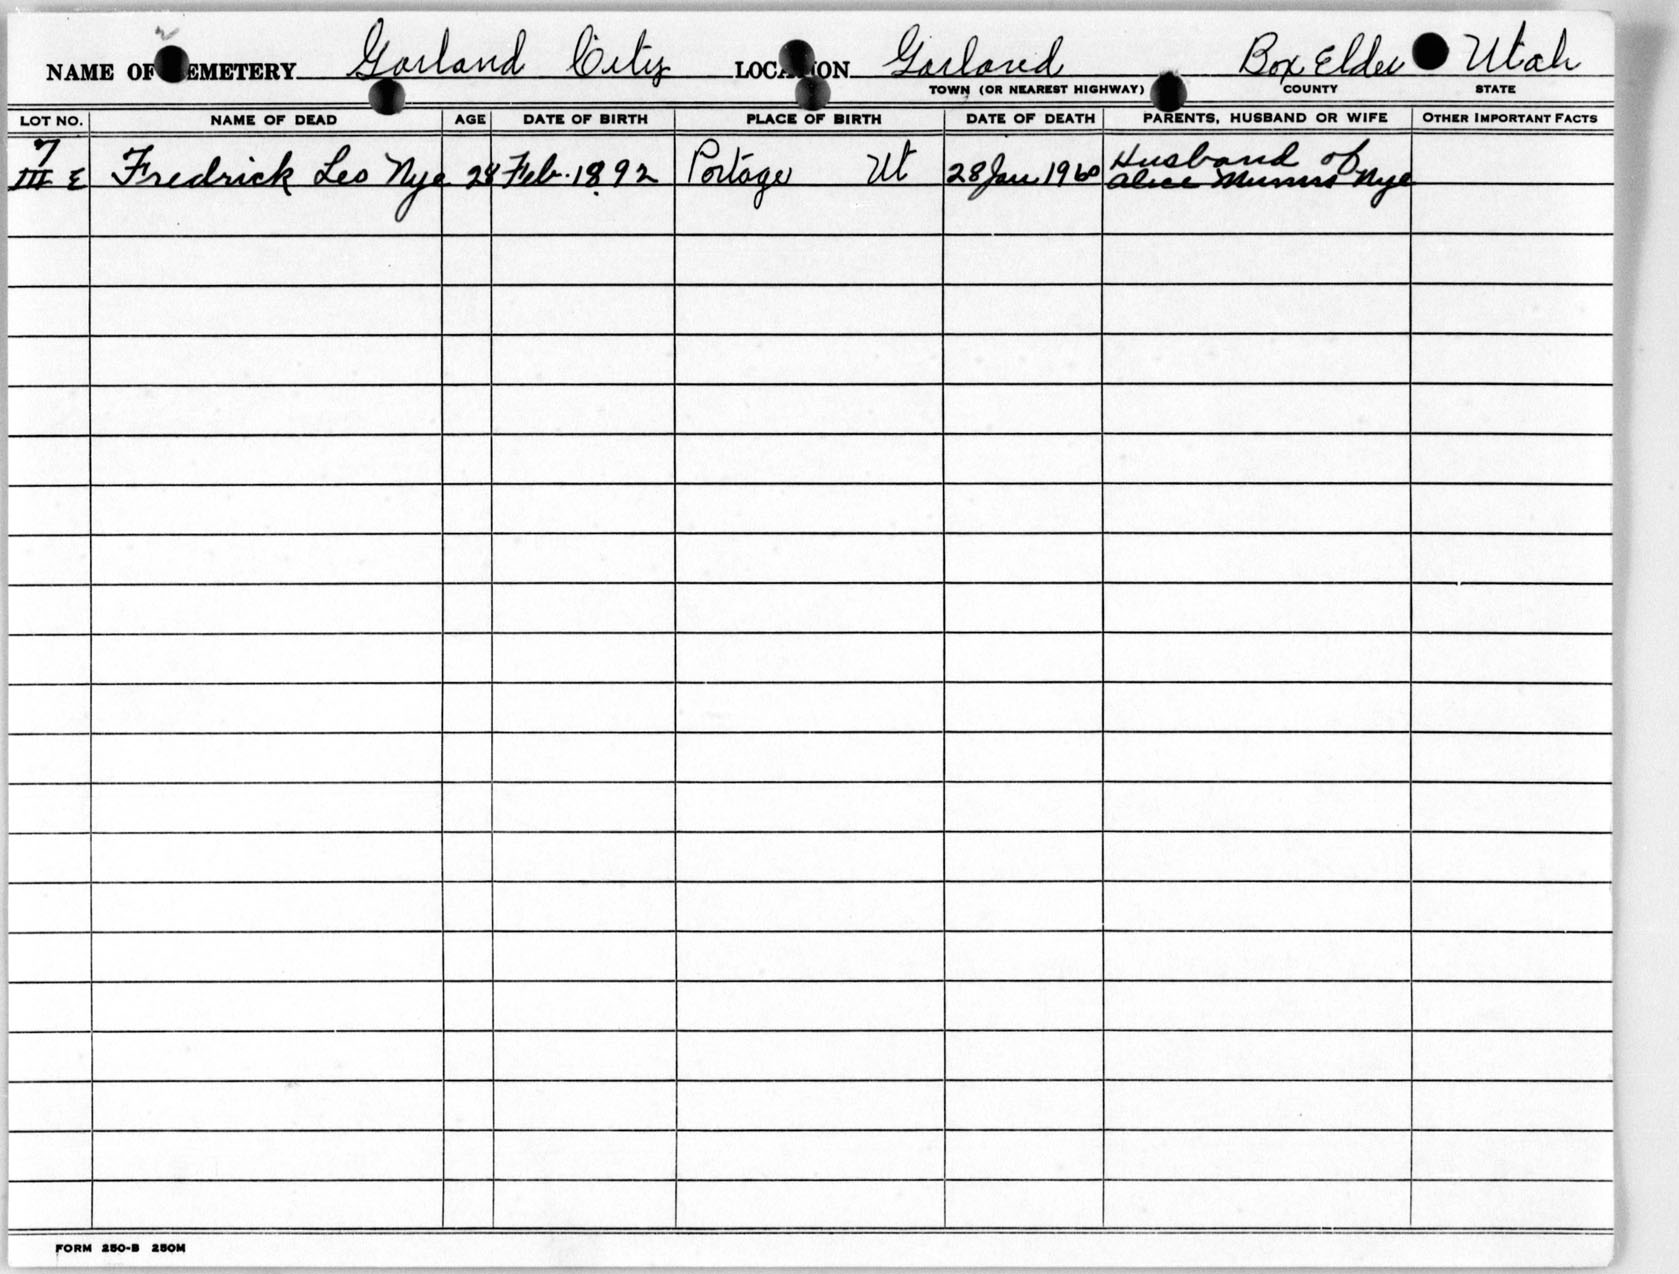 NAME OF CEMETERY Garland City LOCATION Garland Box Elder Utah
TOWN (OR NEAREST HIGHWAY) COUNTY STATE
LOT NO. NAME OF DEAD AGE DATE OF BIRTH PLACE OF BIRTH DATE OF DEATH PARENTS, HUSBAND OR WIFE OTHER IMPORTANT FACTS
7 Husband of
III E Fredrick Leo Nye 28 Feb. 1892 Portage Ut 28 Jan 1960 Alice Nye
FORM 250-B 250M